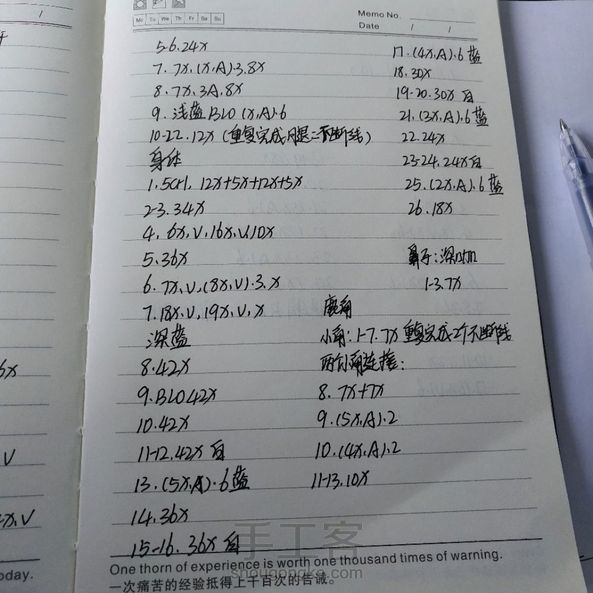 Memo No.
Mo Tu We Th Fr Sa Su
Date / /
5-6.24X
7. 7X.(X.A).3.8X
8. 7X.3A.8X
9. 浅蓝BLO (X.A).6
10-22. 12X (重复完成
身体
1. 5ch. 12X+5X+12X+5X
2-3.34X
4. 6X.V.16X.V.10X
5.36X
6. 7X.V.(8X.V).3.X
7.18X.V.19X.V.X
深蓝
8.42X
9.BLO42X
10.42X
11-12.42X 白
13.(5X.A).6 蓝
14.36X
15-16. 36X 白
17.(4X.A).6 蓝
18.30X
19-20.30X 白
21.(3X.A).6 蓝
22.24X
23-24.24X 白
25.(2X.A).6 蓝
26.18X
鼻子:深
1-3.7X
鹿角
小角:1-7.7X 重复完成2个不断线
两个小角连接:
8. 7X+7X
9.(5X.A).2
10.(4X.A).2
11-13.10X
One thorn of experience is worth one thousand times of warning.
一次痛苦的经验抵得上千百次的告诫。
oday.
手工客
shougongke.com